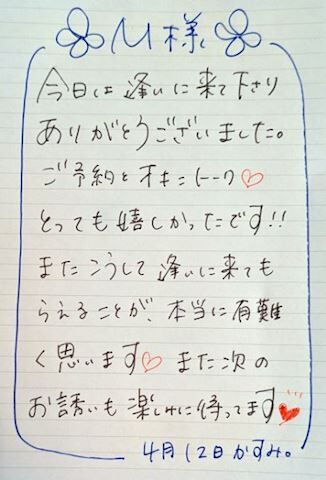 M様
今日は逢いに来て下さり
ありがとうございました。
ご予約とオキニトーク♡
とっても嬉しかったです!!
またこうして逢いに来ても
らえることが、本当に有難
く思います♡ また次の
お誘いも楽しみに待ってます♥
4月12日かすみ。